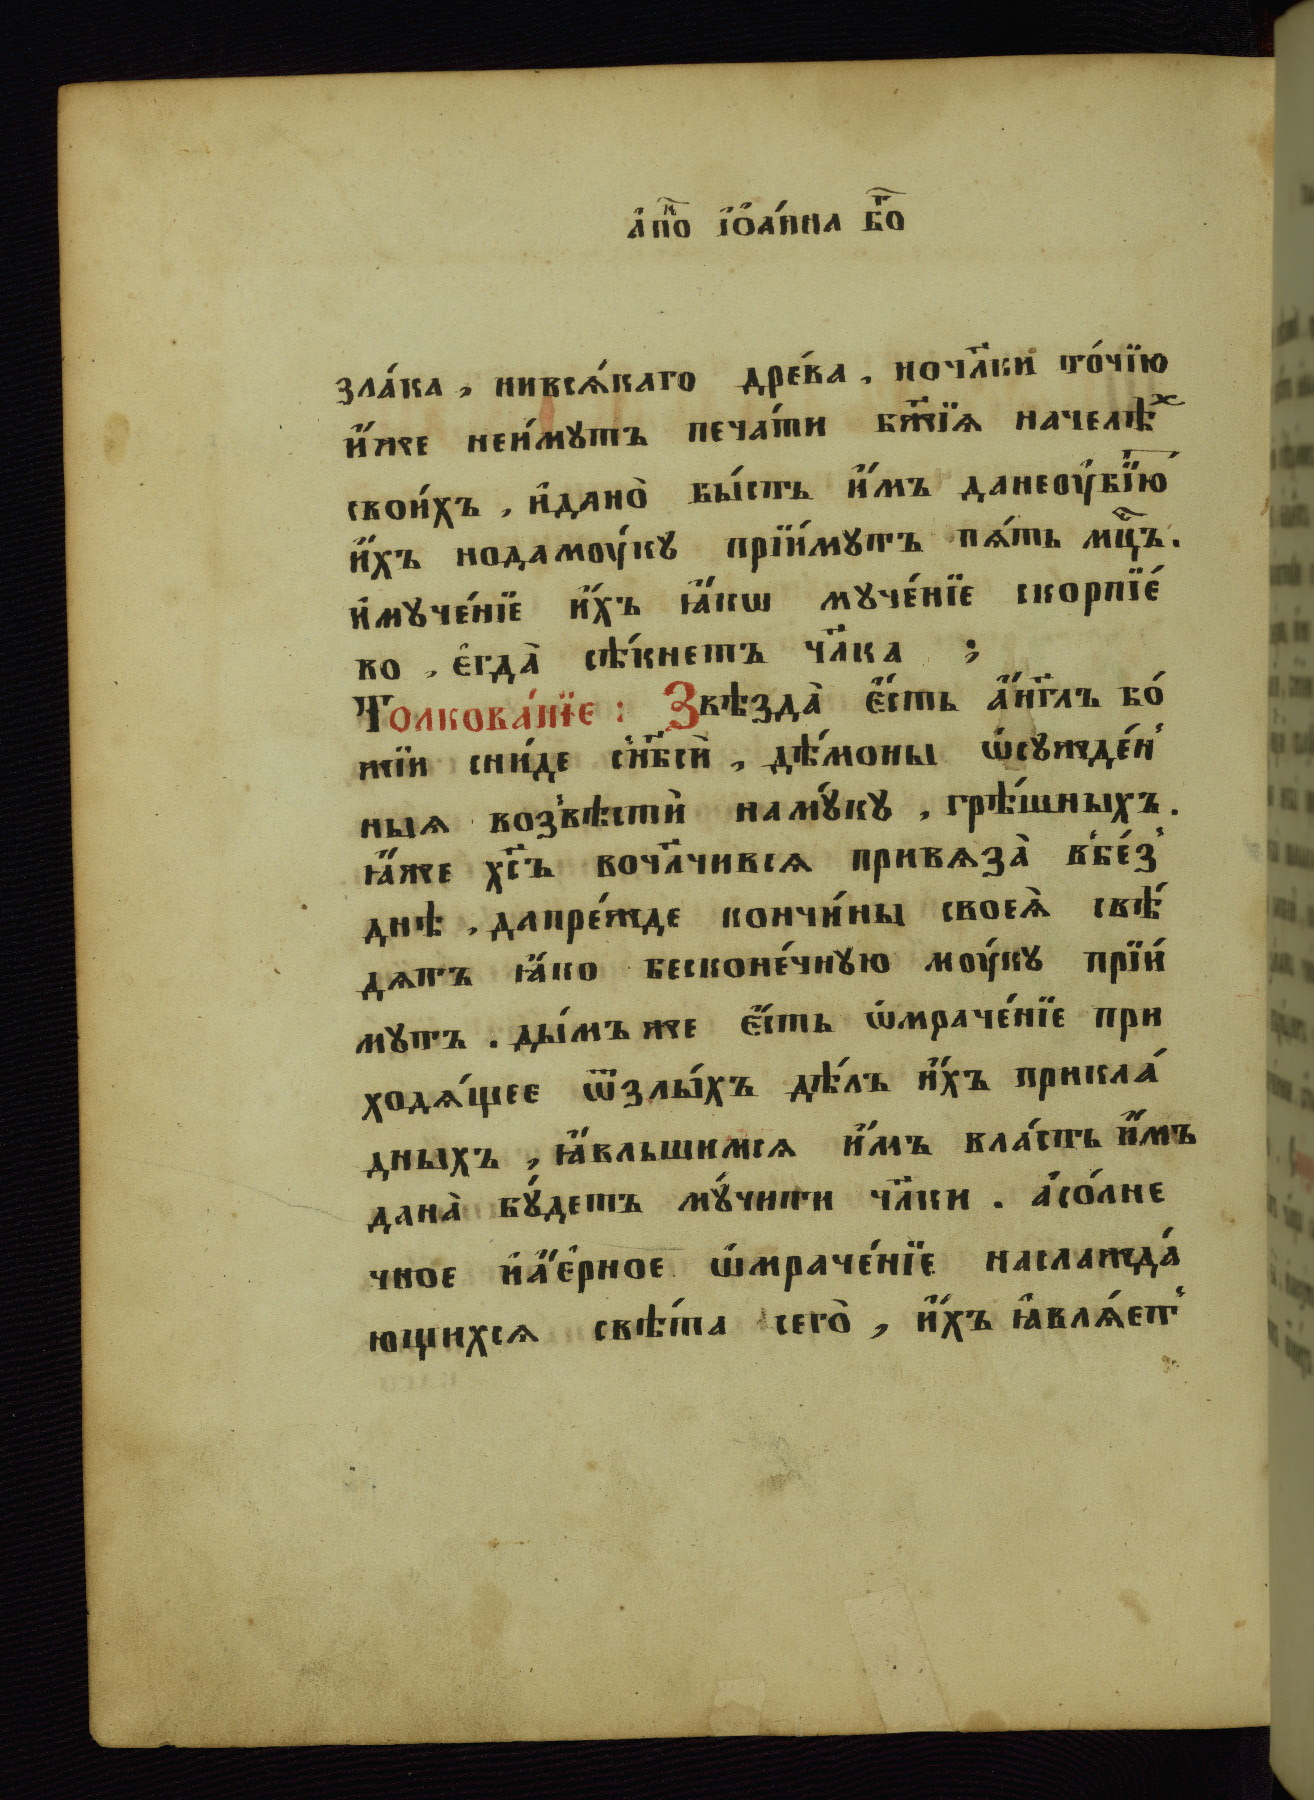 а҆пⷭ҇ко і҆ѡа́нна бг҃о
зла́ка, нивсѧ́каго дре́ва, ночл҃ки то́чїю
и҆́же неи́мутъ печа́ти бж҃їѧ начелѣ́ⷯ
свои́хъ, и҆дано̀ бы́сть и҆́мъ данеоу҆бїю́тъ
и҆́хъ нодамоу́ку прїи́мутъ пѧ́ть мцⷭ҇ъ.
и҆муче́нїе и҆́хъ ꙗ҆́кѡ муче́нїе скорпїе́
во, є҆гда̀ сѣ́кнетъ чл҃ка ;
Толкова́нїе : Ѕвѣзда̀ є҆́сть а҆́нг҃лъ бо́
жїи сни́де с̾нб҃сѝ, дѣ́моны ѡ҆сужде́н̾
ныѧ воз̾вѣстѝ наму́ку, грѣ́шныхъ.
ꙗ҆́же хс҃ъ вочл҃чивсѧ привѧза̀ в̾бе́з̾
днѣ, дапре́жде кончи́ны своеѧ̀ свѣ́
дѧтъ ꙗ҆́ко бесконе́чную моу́ку прїи́
мутъ. ды́мъ же є҆́сть ѡ҆мраче́нїе при
ходѧ́щее ѿзлы́хъ дѣ́лъ и҆́хъ прикла́
дныхъ, ꙗ҆́вльшимсѧ и҆́мъ вла́сть и҆́мъ
дана̀ бу́детъ му́чити чл҃ки. а҆со́лне
чное и҆а҆е́рное ѡ҆мраче́нїе наслажда́
ющихсѧ свѣ́та сего̀, и҆́хъ ꙗ҆влѧ́ет̾